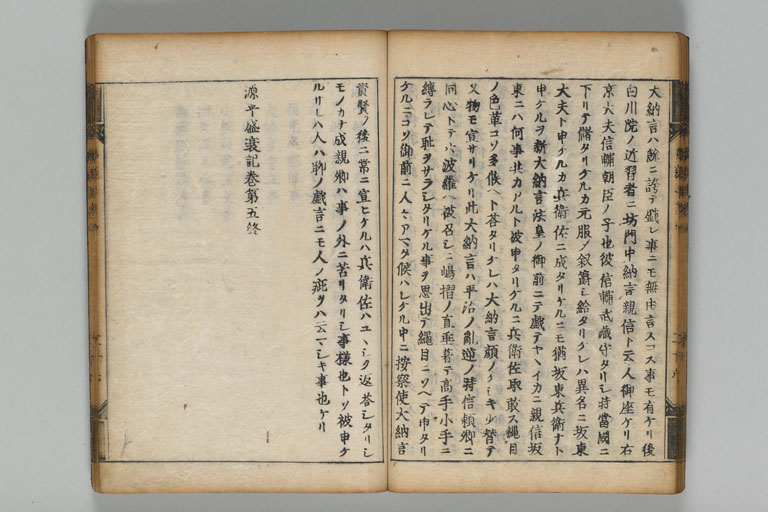 大納言ハ餘ニ誇テ戯レ事ニモ無由言スコス事モ有ケリ後
白川院ノ近習者ニ坊門中納言親信ト云人御座ケリ右
京大夫信輔朝臣ノ子也彼信輔武蔵守タリシ時當國ニ
下リテ儲タリケルカ元服ノ叙爵シ給タリケレハ異名ニ坂東
大夫ト申ケルカ兵衛佐ニ成タリケルニモ猶坂東兵衛ナト
申ケルヲ新大納言法皇ノ御前ニテ戯テヤヽイカニ親信坂
東ニハ何事共カアルト被申タリケルニ兵衛佐取敢ス縄目
ノ色革コソ多候ヘト答タリケレハ大納言顔ノケシキ少替テ
又物モ宣サリケリ此大納言ハ平治ノ亂逆ノ時信頼卿ニ
同心トテ六波羅ヘ被召シニ嶋摺ノ直垂著テ高手小手ニ
縛ラレテ恥ヲサラシタリケル事ヲ思出テ縄目ニソヘテ申タリ
ケルニコソ御前ニ人々アマタ候ハレケル中ニ按察使大納言
資賢ノ後ニ常ニ宣ヒケルハ兵衛佐ハユヽシク返答シタリシ
モノカナ成親卿ハ事ノ外ニ苦リタリシ事様也トソ被申ケ
ルサレハ人ハ聊ノ戯言ニモ人ノ疵ヲハ云マシキ事也ケリ
源平盛衰記巻第五終